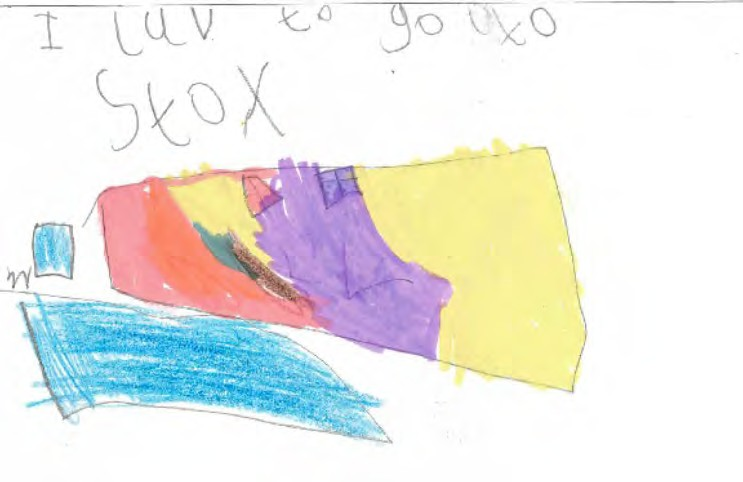 I luv to go to
Stox